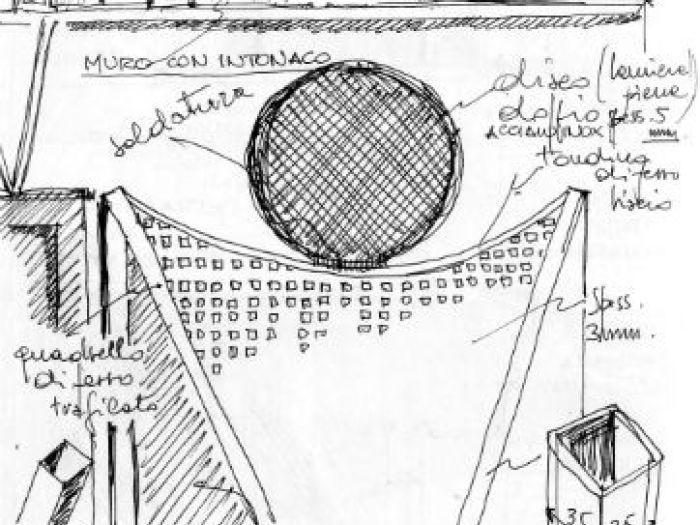 MURO CON INTONACO
saldatura
disco (lamiera
piena)
doppio spess. 5
ACCIAIO INOX mm.
tondino
di ferro
liscio
Spess.
3 mm.
quadrello
di ferro
traficato
35